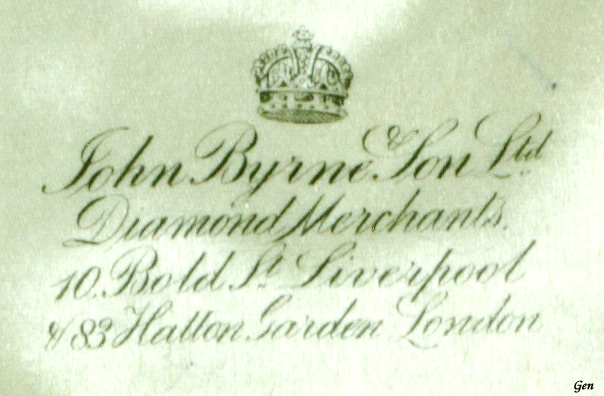 John Byrne & Son Ltd
Diamond Merchants.
10. Bold St. Liverpool
& 83 Hatton Garden London
Gen